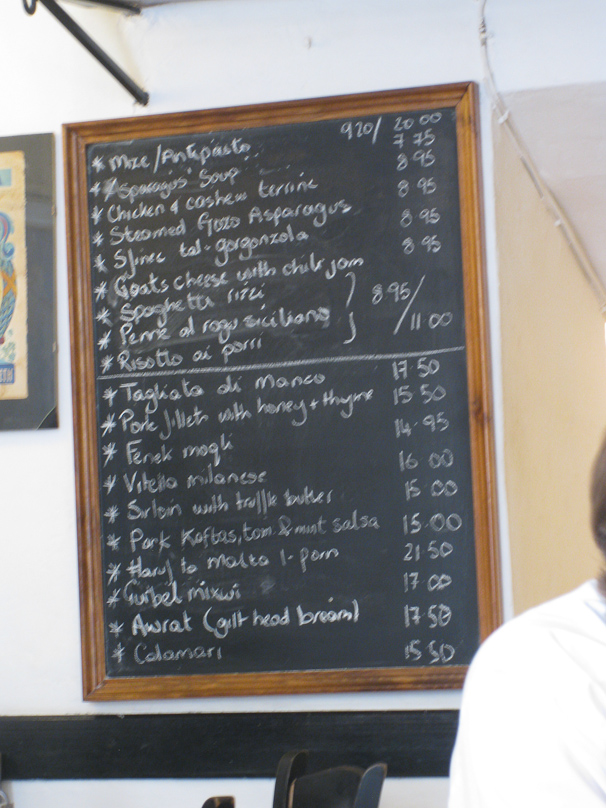 * Mize/Antipasto 920/ 20 00
* Asparagus Soup 7 75
* Chicken & cashew terrine 8 95
* Steamed Gozo Asparagus 8 95
* Sfinec tal-gorgonzola 8 95
* Goats cheese with chilli jam 8 95
* Spaghetti rizzi
* Penne al ragu siciliano 8 95/
* Risotto ai porri /11 00
* Tagliata di Manzo 17.50
* Pork fillets with honey + thyme 15 50
* Fenek moqli 14.95
* Vitello milanese 16 00
* Sirloin with truffle butter 15 00
* Pork Koftas, tom & mint salsa 15.00
* Haruf ta Malta l-forn 21 50
* Gurbel mixwi 17 00
* Awrat (gilt head bream) 17.50
* Calamari 15 50